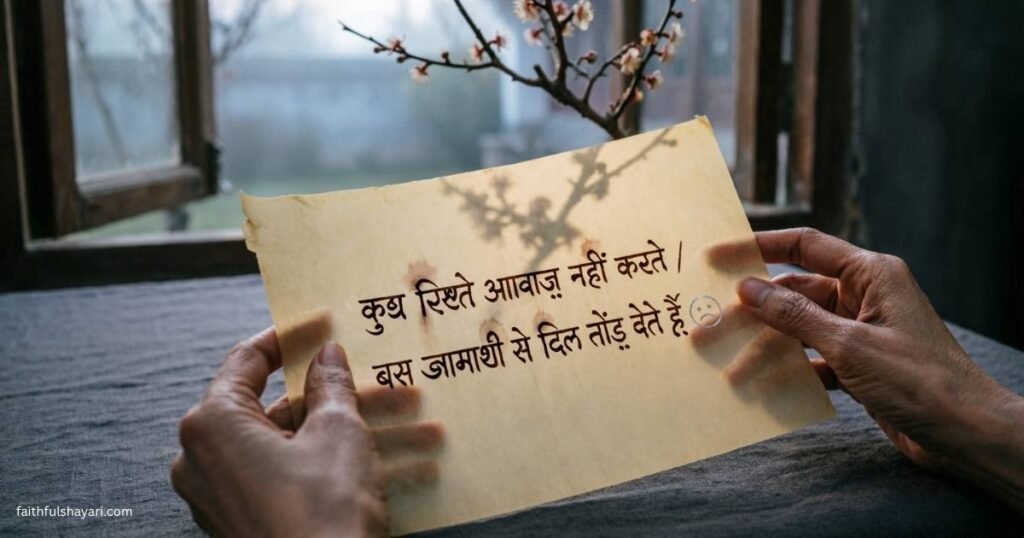 कुछ रिश्ते आवाज़ नहीं करते /
बस खामोशी से दिल तोड़ देते हैं
faithfulshayari.com